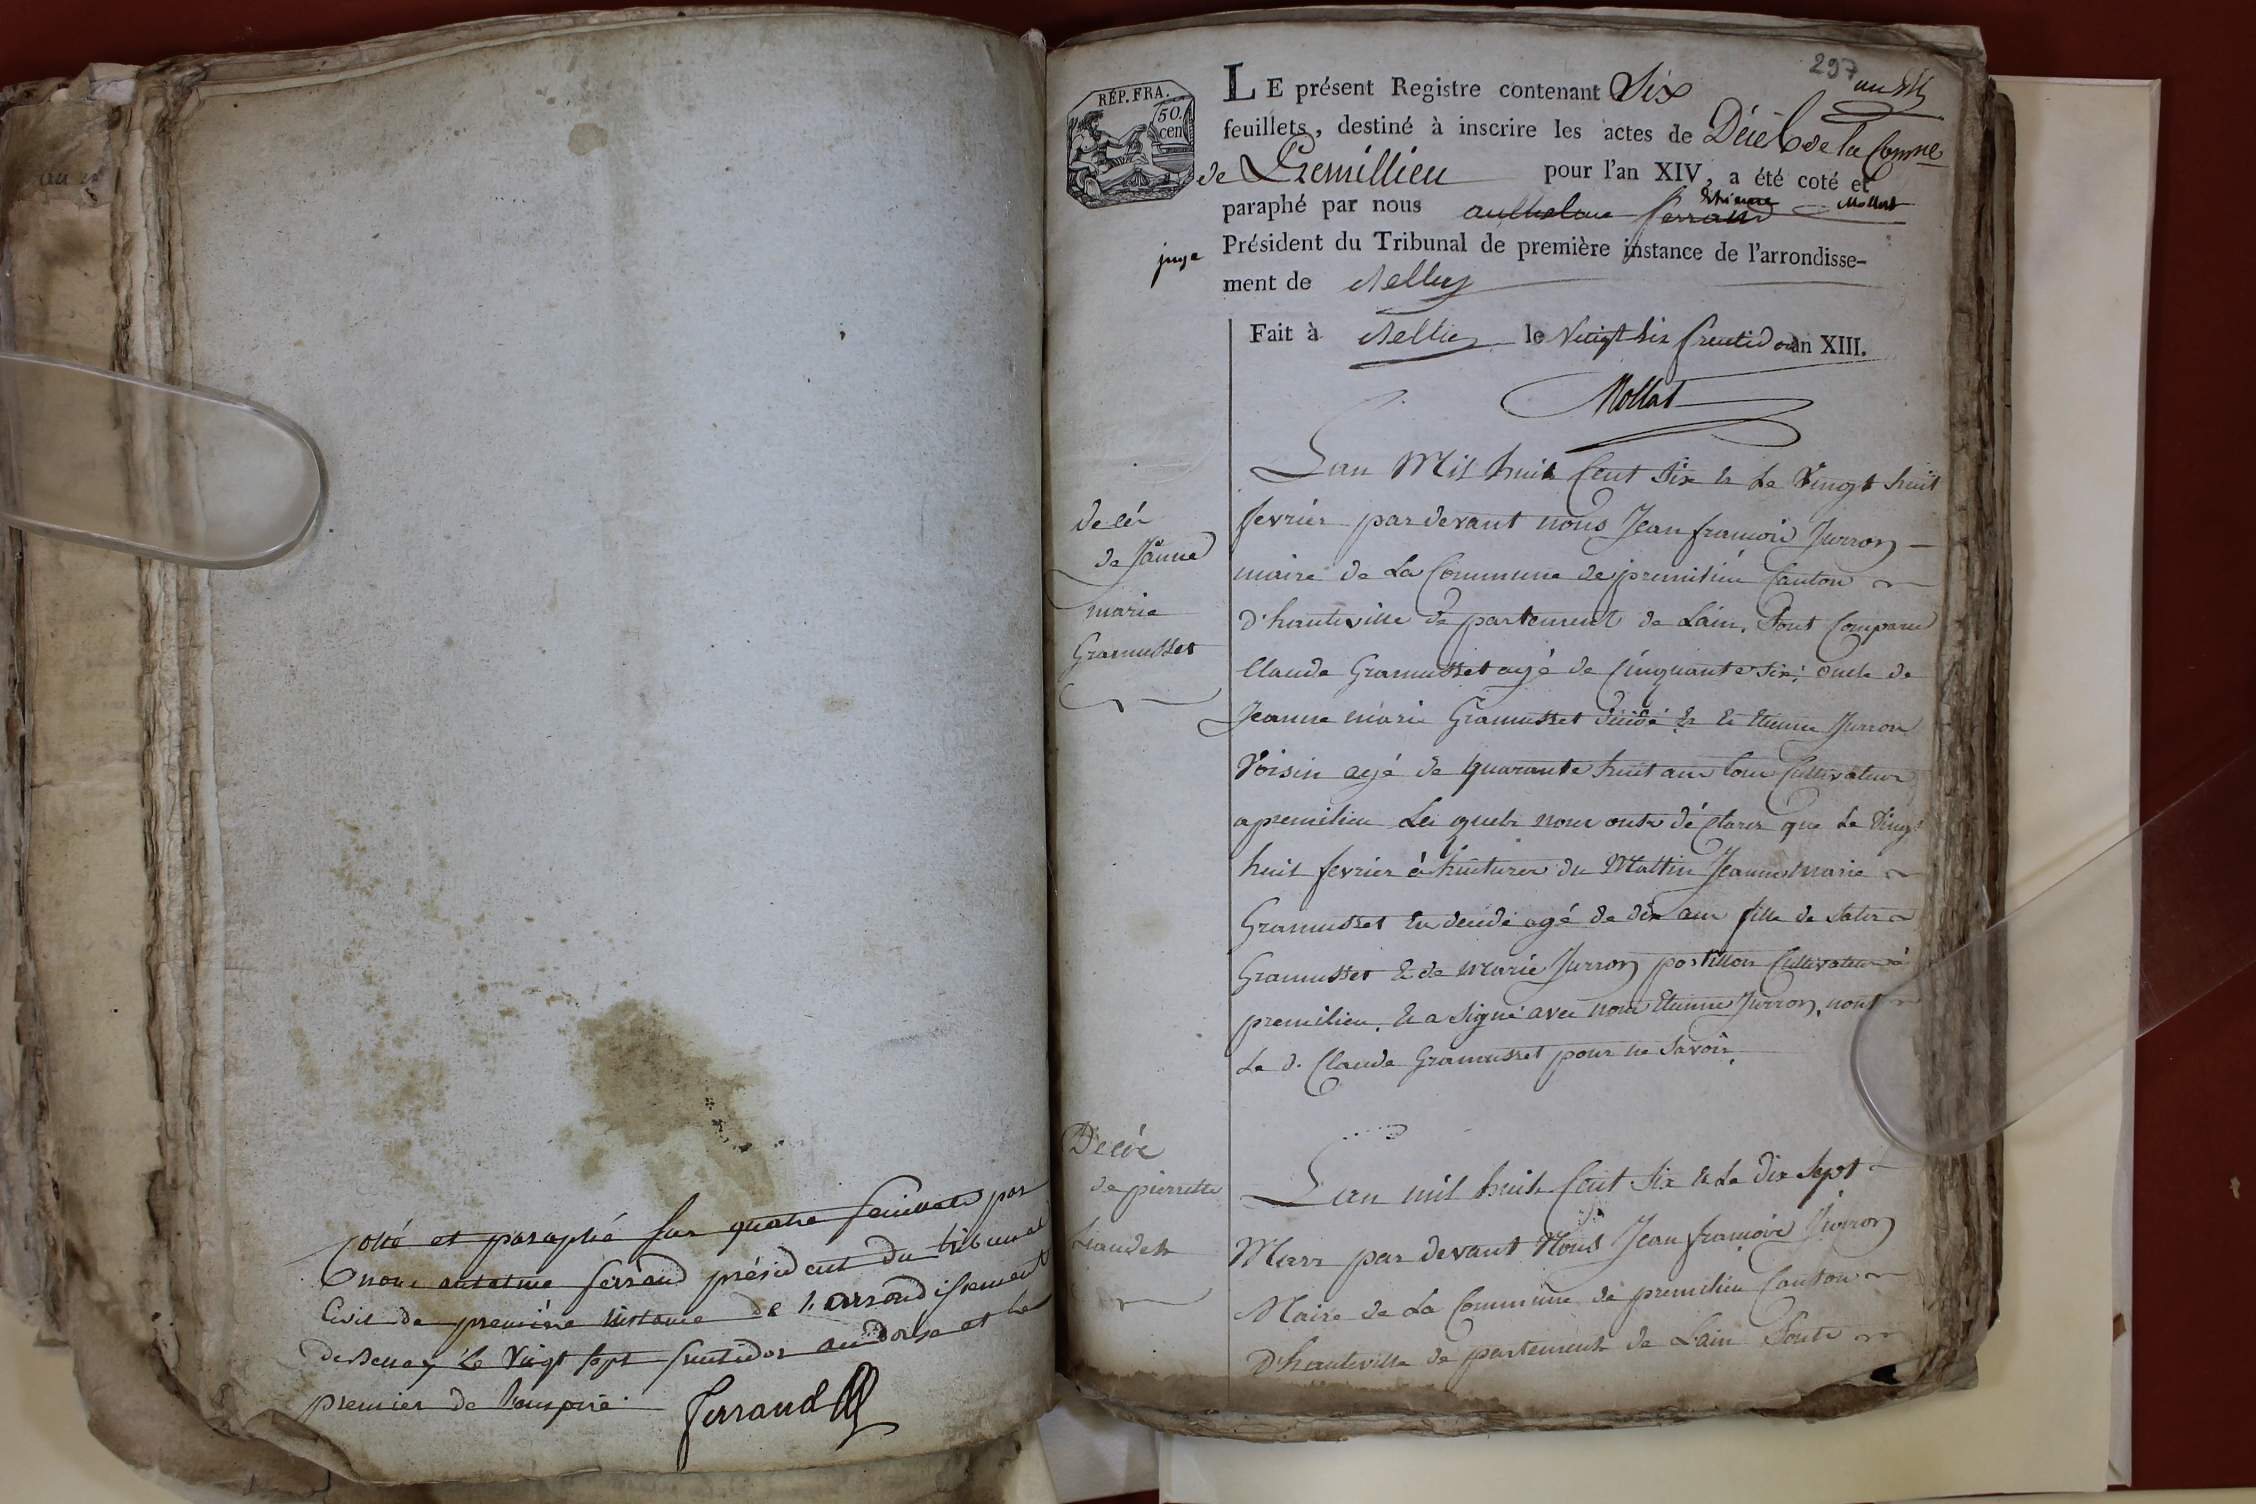 Cotté et paraphé sur quatre feuillets par
nous antelme ferrand président du tribunal
Civil de première instance de l'arrondissement
de Belley Le Vingt sept fructidor an douse et le
premier de l'empire.
Ferrand
297
RÉP. FRA.
50.
cen
LE présent Registre contenant Six
feuillets, destiné à inscrire les actes de Décès de la Comne
de Premillieu pour l'an XIV, a été coté et
paraphé par nous anthelme ferrand Etienne Mollat
juge Président du Tribunal de première instance de l'arrondisse-
ment de Belley
Fait à Belley le Vingt six fructidor an XIII.
Mollat
decés
de Jeanne
marie
Gramusset
Lan Mil huit Cent Six & Le Vingt huit
fevrier pardevant nous Jean françois Jurron
maire de La Commune de premilieu Canton
d'hauteville departement de Lain. Sont Comparu
Claude Gramusset agé de Cinquante six: oncle de
Jeanne marie Gramusset & Etienne Jurron
Voisin agé de quarante huit ans tous Cultivateur
a premilieu Les quels nous onts déclarer que Le Vingt
huit fevrier à huit urer du Mattin Jeanne Marie
Gramusset Es decedé agé de dix ans fille de
Gramusset & de Marie Jurron postillon Cultivateur à
premilieu. & a Signé avec nous Etienne Jurron, nont
Le d. Claude Gramusset pour ne Savoir.
Decée
de pierrette
Lan mil huit Cent Six & Le Dix Sept
Mars par devant Nous Jean françois Jurron
Maire de La Commune de premilieu Canton
D'hauteville departement de Lain Sont